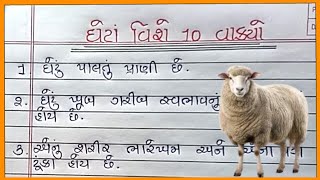 ઘેટાં વિશે 10 વાક્યો
1. ઘેટું પાલતું પ્રાણી છે.
2. ઘેટું ખૂબ ગરીબ સ્વભાવનું
હોય છે.
3. ઘેટાંનું શરીર ભારેખમ અને
ટૂંકા હોય છે.